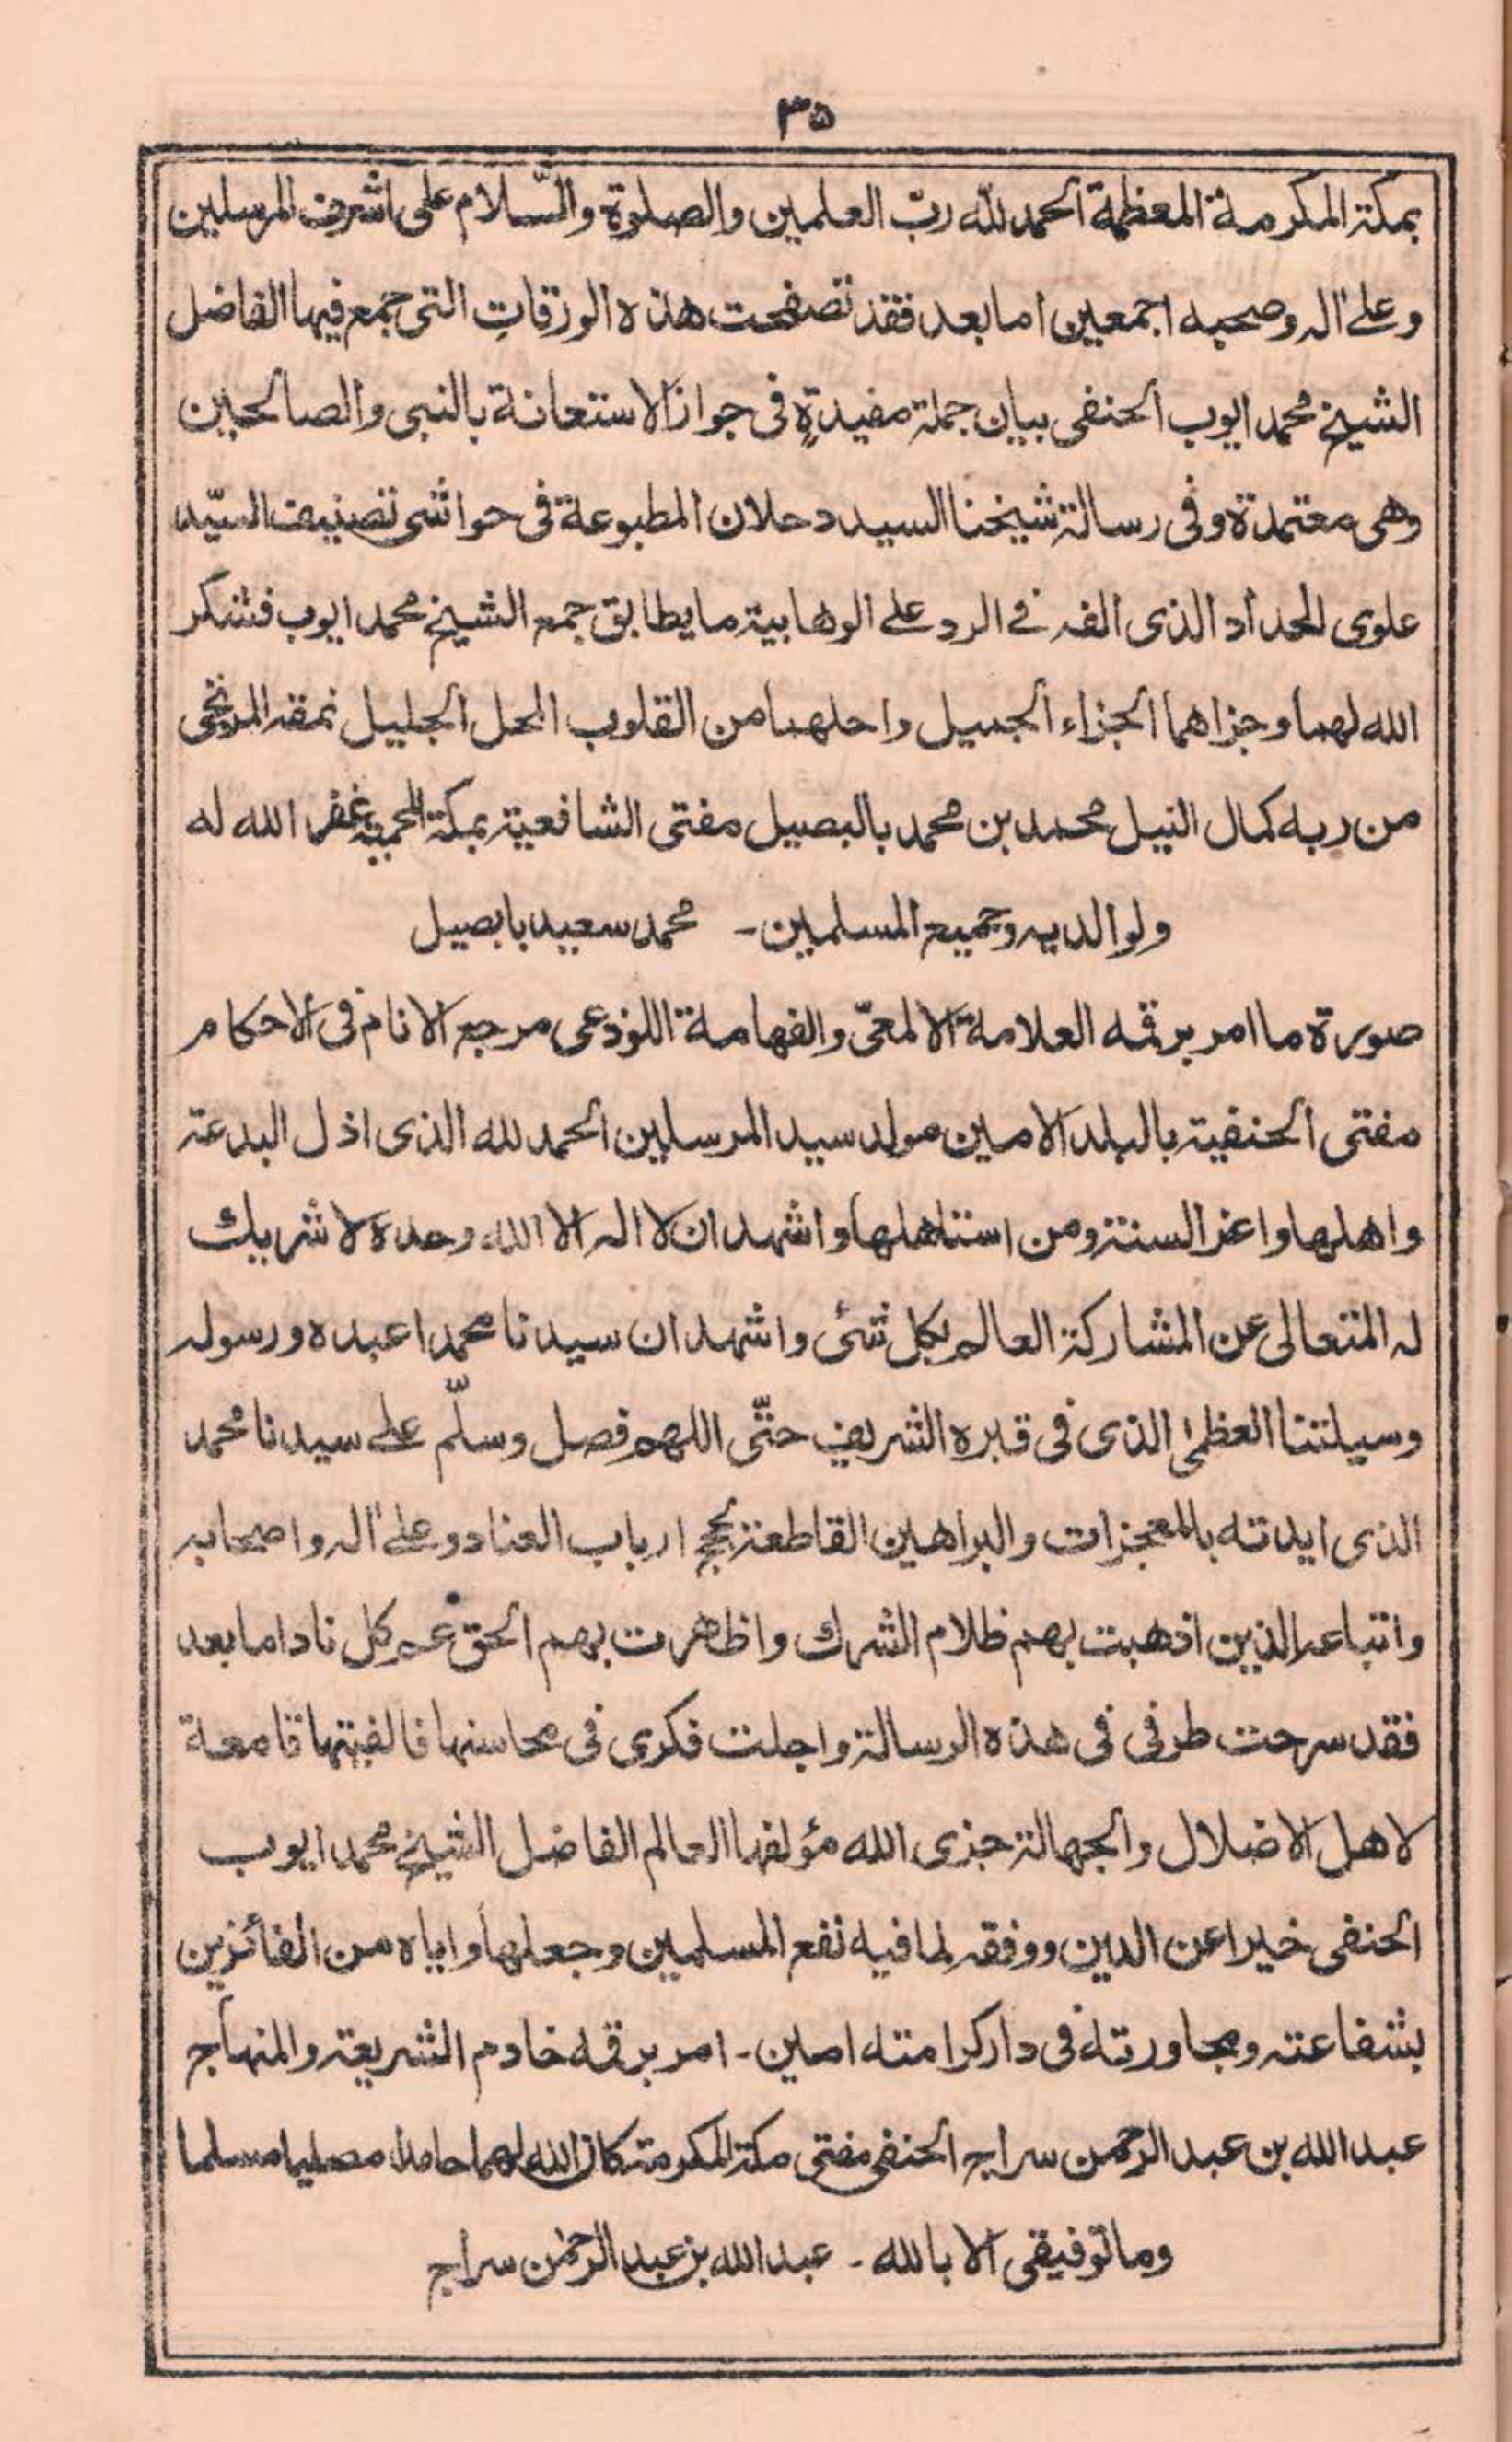 ۳۵
بمكة المكرمة المعظمة الحمد لله ربّ العلمين والصلوة والسّلام على اشرف المرسلين
وعلى اله وصحبه اجمعين اما بعد فقد تصفحت هذه الورقات التى جمع فيها الفاضل
الشيخ محمد ايوب الحنفى بيان جملة مفيدةٍ فى جواز الاستعانة بالنبى والصالحين
وهى معتمدة وفى رسالة شيخنا السيد دحلان المطبوعة فى حواشى تصنيف السيّد
علوى الحداد الذى الفه فى الرد على الوهابية ما يطابق جمع الشيخ محمد ايوب فشكر
الله لهما وجزاهما الجزاء الجميل واحلهما من القلوب المحل الجليل نمقه المرتجى
من ربه كمال النيل محمد بن محمد بالبصيل مفتى الشافعية بمكة المحمية غفر الله له
ولوالديه وجميع المسلمين - محمد سعيد بابصيل
صورة ما امر برقمه العلامة الالمعىّ والفهامة اللوذعى مرجع الانام فى الاحكام
مفتى الحنفية بالبلد الامين مولد سيد المرسلين الحمد لله الذى اذل البدعة
واهلها واعز السنة ومن استاهلها واشهد ان لا اله الا الله وحده لا شريك
له المتعالى عن المشاركة العالم بكل شئ واشهد ان سيدنا محمدا عبده ورسوله
وسيلتنا العظمى الذى فى قبره الشريف حىّ اللهم فصل وسلّم على سيدنا محمد
الذى ايدته بالمعجزات والبراهين القاطعة بحجج ارباب العناد وعلى اله واصحابه
واتباعه الذين اذهبت بهم ظلام الشرك واظهرت بهم الحق كل ناد اما بعد
فقد سرحت طرفى فى هذه الرسالة واجلت فكرى فى محاسنها فالفيتها قامعة
لاهل الاضلال والجهالة جزى الله مؤلفها العالم الفاضل الشيخ محمد ايوب
الحنفى خيرا عن الدين ووفقه لما فيه نفع المسلمين وجعلها واياه من الفائزين
بشفاعته ومجاورته فى دار كرامته امين - امر برقمه خادم الشريعة والمنهاج
عبد الله بن عبد الرحمن سراج الحنفى مفتى مكة المكرمة كان الله لهما حامدا مصليا مسلما
وما توفيقى الا بالله - عبد الله بن عبد الرحمٰن سراج